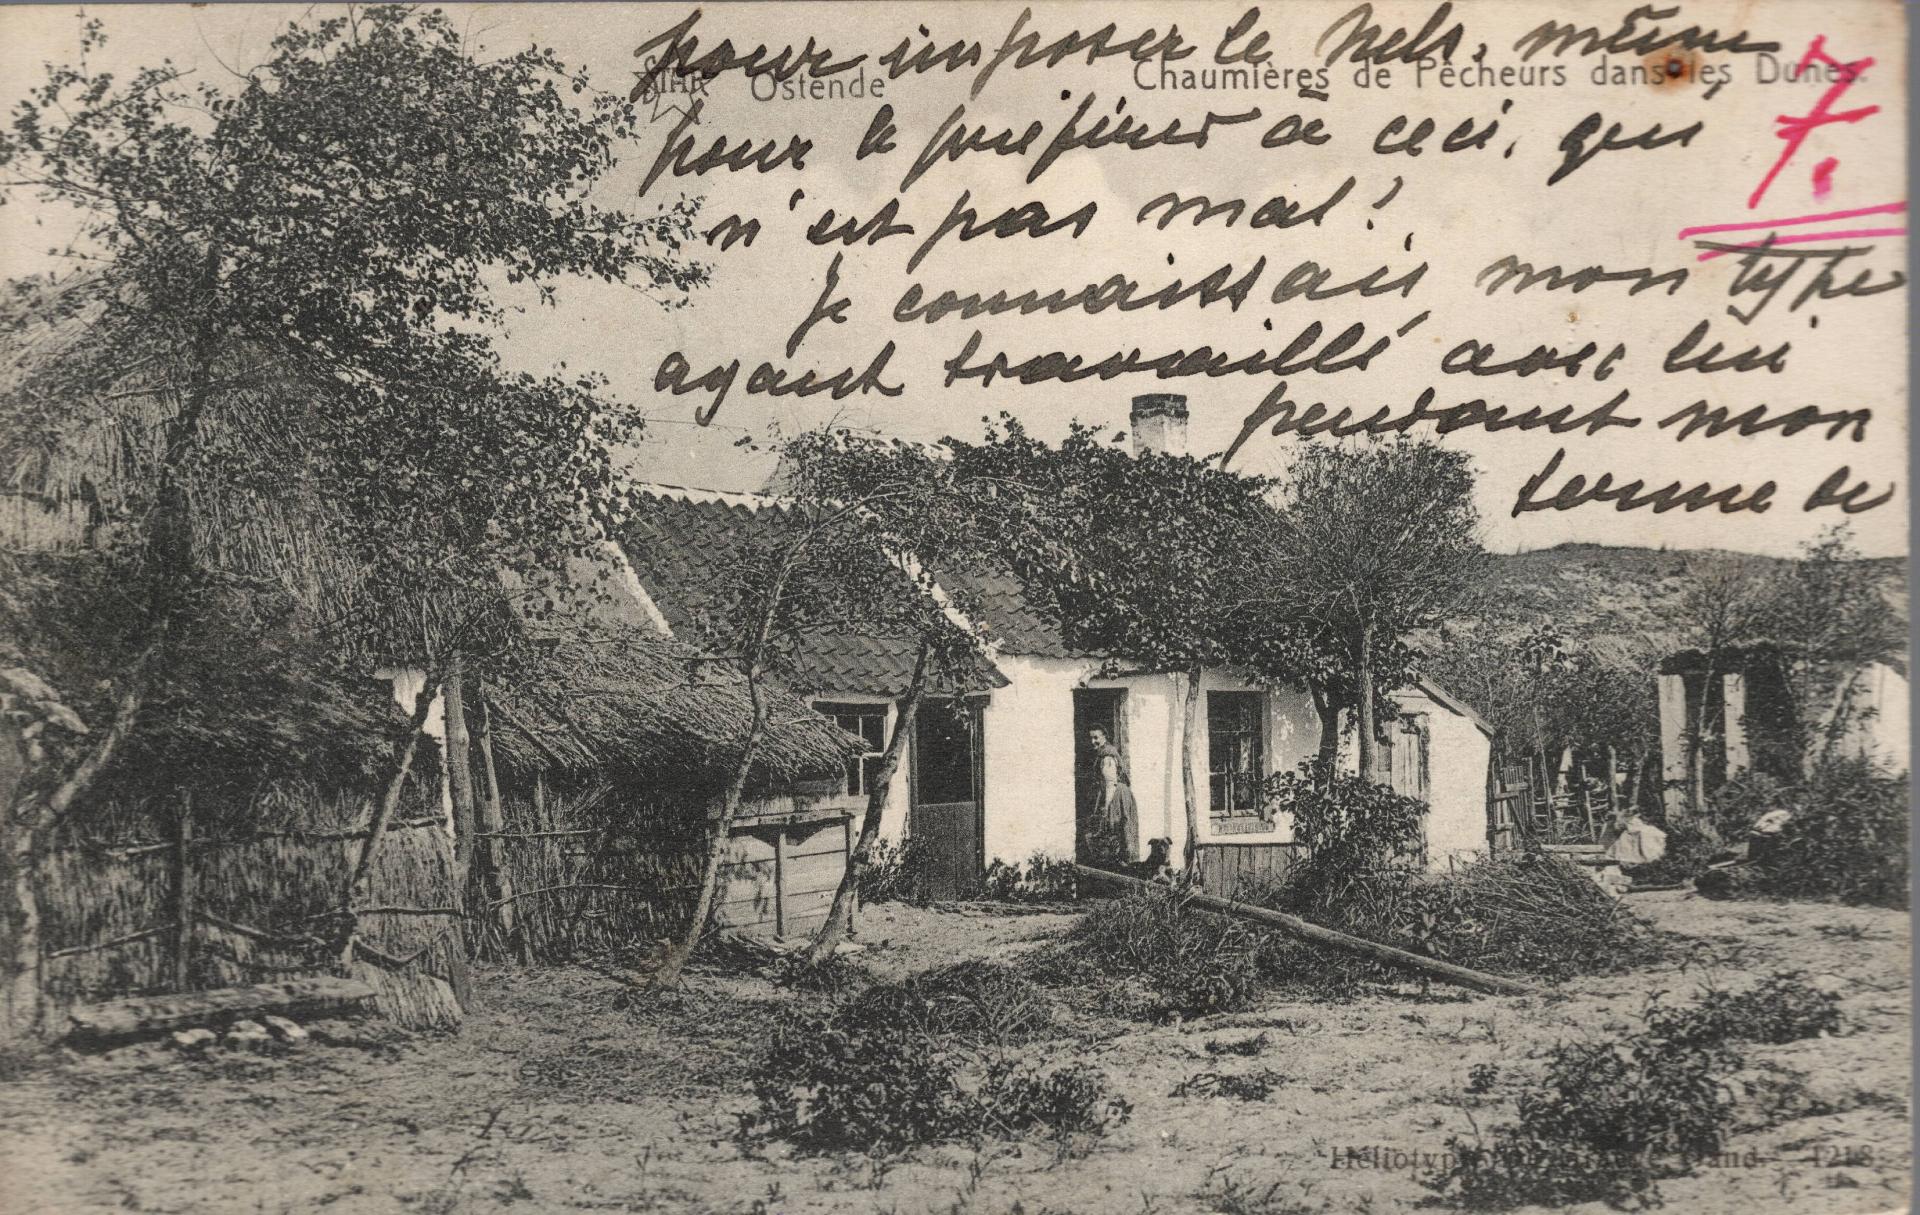 pour imposer le Nels, même
Ostende
Chaumières de Pêcheurs dans les Dunes.
pour le préférer à ceci, qui
7.
n'est pas mal!
Je connaissais mon type
ayant travaillé avec lui
pendant mon
terme de
Héliotypie De Graeve, Gand - 1218